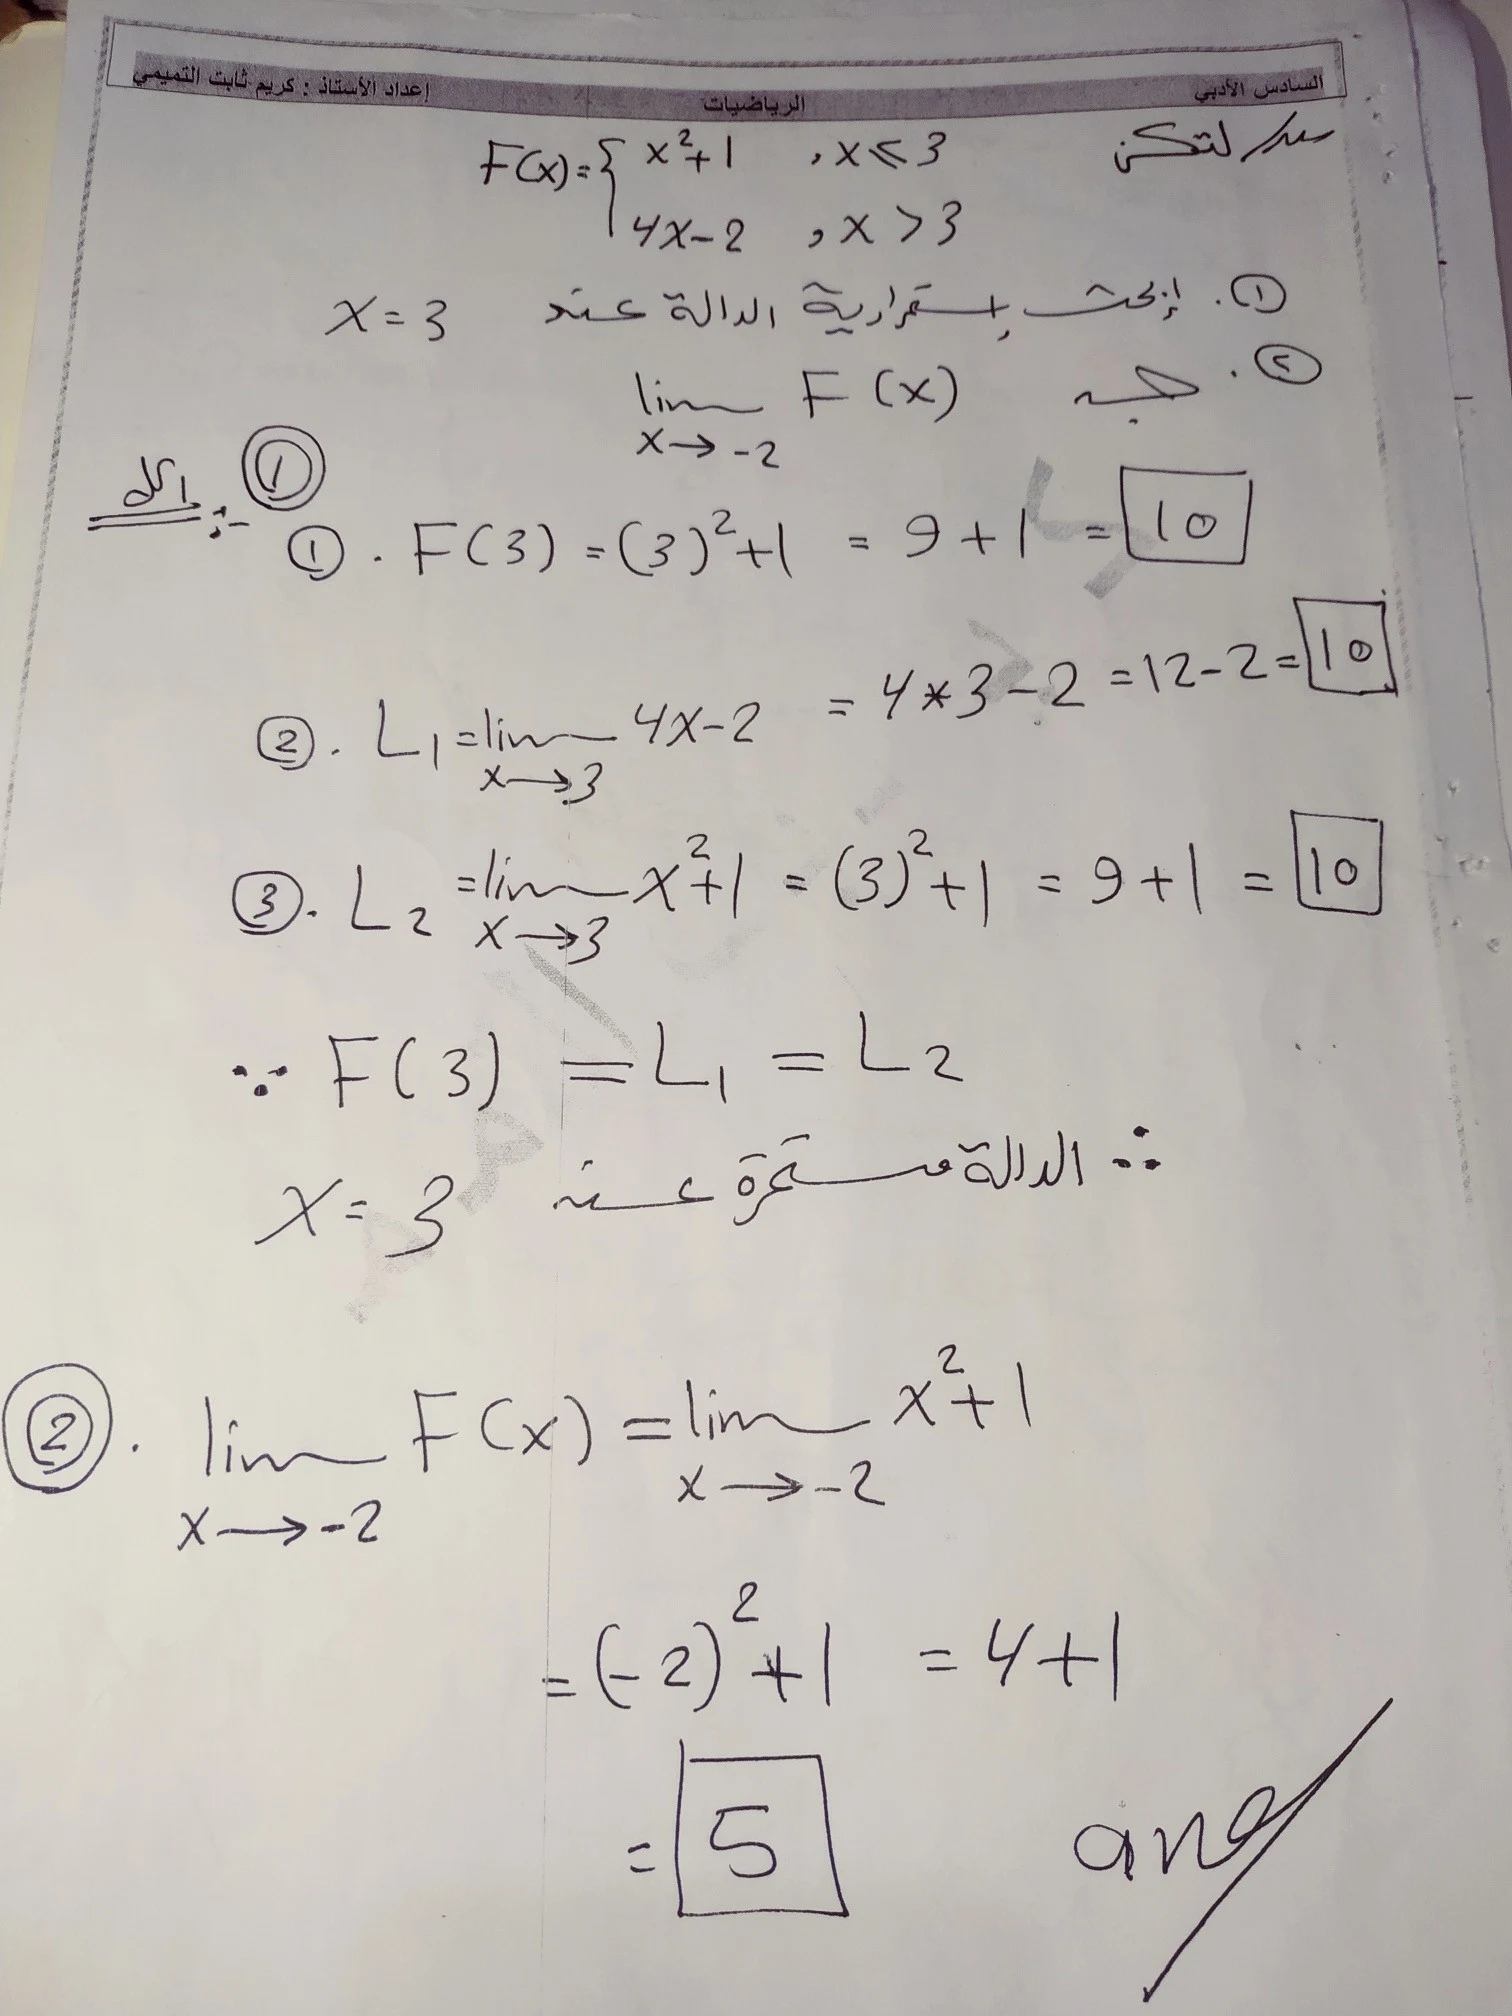 السادس الأدبي الرياضيات إعداد الأستاذ : كريم ثابت التميمي
س/ لتكن F(x)={ x²+1 , x≤3
4x-2 , x>3
①. إبحث إستمرارية الدالة عند x=3
②. جد lim F(x)
x→-2
الحل:- ①
①. F(3)=(3)²+1 = 9+1 = 10
②. L₁=lim 4x-2 = 4*3-2=12-2=10
x→3
③. L₂=lim x²+1 = (3)²+1 = 9+1 = 10
x→3
∵ F(3) = L₁ = L₂
∴ الدالة مستمرة عند x=3
②. lim F(x)=lim x²+1
x→-2 x→-2
=(-2)²+1 =4+1
=5
ans